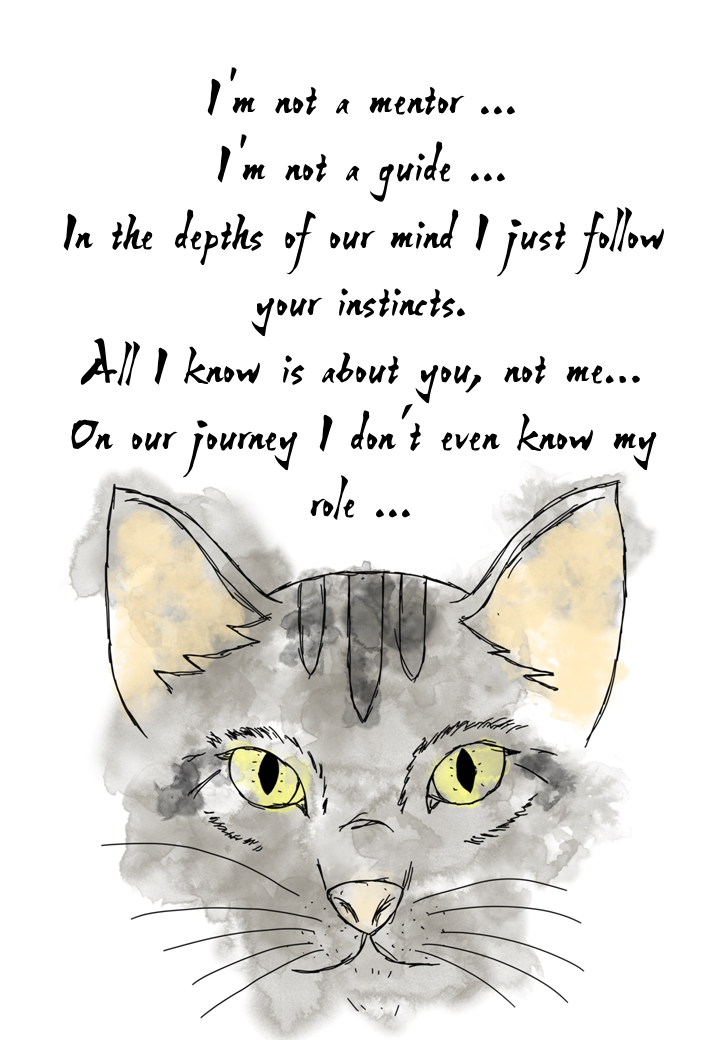 I'm not a mentor ...
I'm not a guide ...
In the depths of our mind I just follow
your instincts.
All I know is about you, not me...
On our journey I don't even know my
role ...